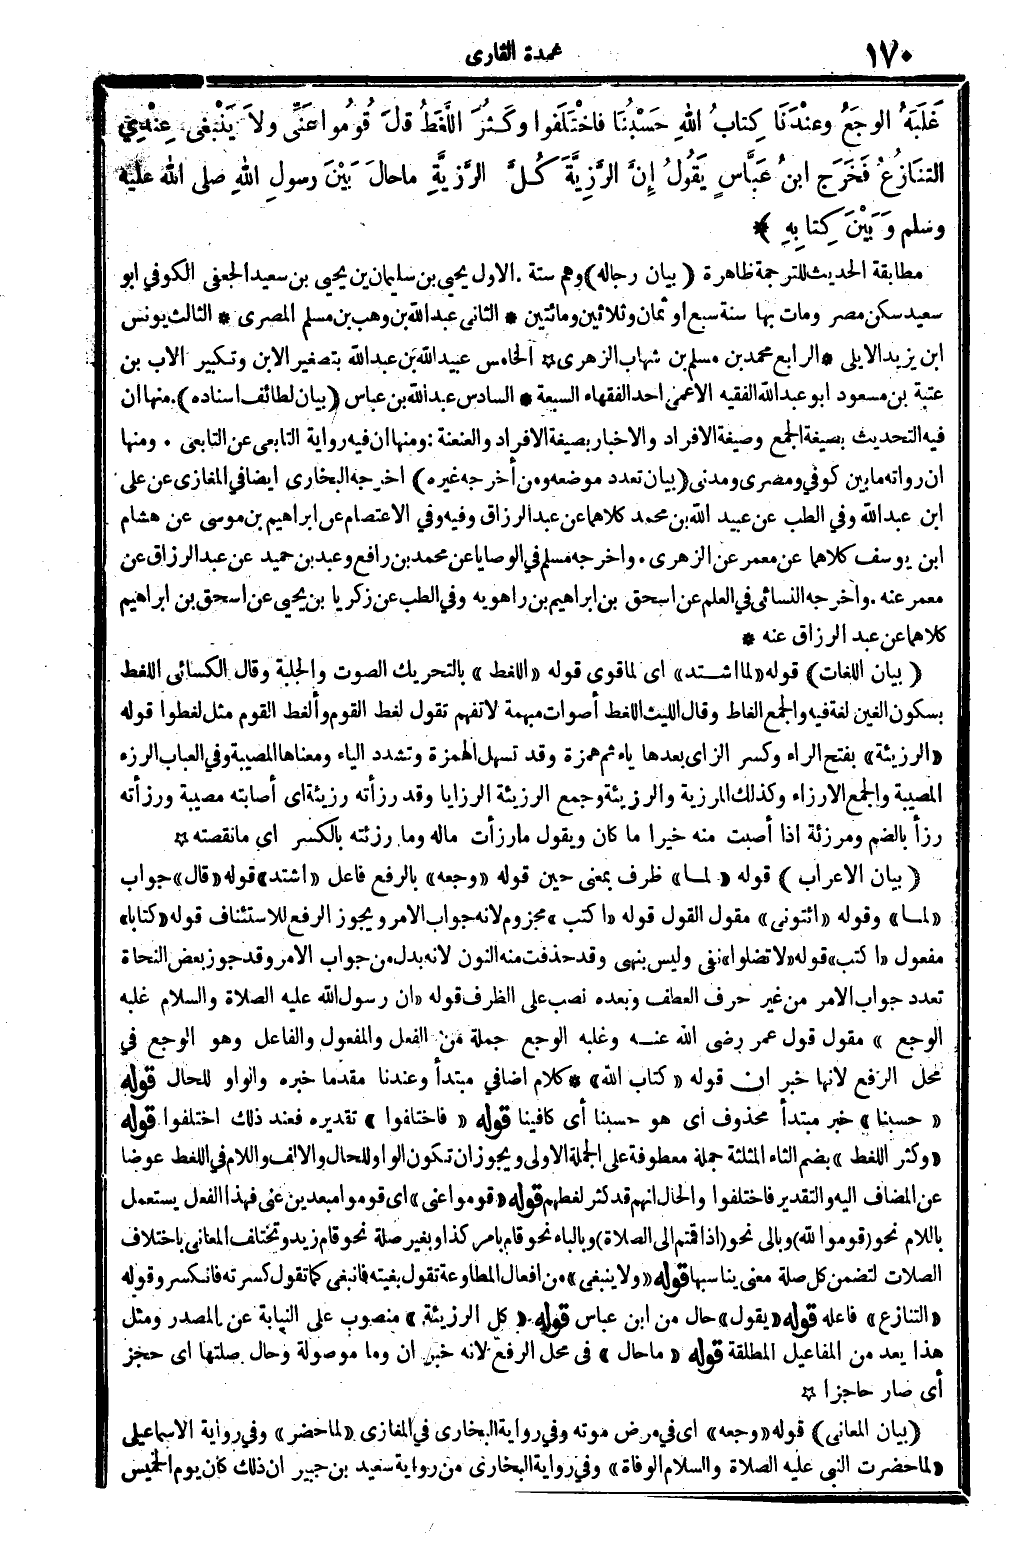 ١٧٠
عمدة القارى
غَلَبَهُ الوجَعُ وعنْدَنَا كِتابُ اللهِ حَسْبُنَا فاخْتَلَفوا وكَثُرَ اللَّغَطُ قالَ قُومُوا عَنِّى ولاَ يَنْبَغى عِنْدِي
التنَازُعُ فَخَرَج ابنُ عَبَّاسٍ يَقُولُ إِنَّ الرَّزِيَّةَ كُلَّ الرَّزِيَّةِ ماحالَ بَيْنَ رسولِ اللهِ صلى الله عليه
وسلم وَبَيْنَ كِتابِهِ ﴾ *
مطابقة الحديث للترجمة ظاهرة ( بيان رجاله ) وهم ستة . الاول يحيى بن سليمان بن يحيى بن سعيد الجعفى الكوفي ابو
سعيد سكن مصر ومات بها سنة سبع او ثمان وثلاثين ومائتين * الثانى عبد الله بن وهب بن مسلم المصرى * الثالث يونس
ابن يزيد الايلى * الرابع محمد بن مسلم بن شهاب الزهرى * الخامس عبيد الله بن عبد الله بتصغير الابن وتكبير الاب بن
عتبة بن مسعود ابو عبد الله الفقيه الاعمى احد الفقهاء السبعة * السادس عبد الله بن عباس ( بيان لطائف اسناده ) . منها ان
فيه التحديث بصيغة الجمع وصيغة الافراد والاخبار بصيغة الافراد والعنعنة : ومنها ان فيه رواية التابعى عن التابعى . ومنها
ان رواته مابين كوفي ومصرى ومدنى ( بيان تعدد موضعه ومن أخرجه غيره ) اخرجه البخارى ايضا في المغازى عن على
ابن عبد الله وفي الطب عن عبيد الله بن محمد كلاهما عن عبد الرزاق وفيه وفي الاعتصام عن ابراهيم بن موسى عن هشام
ابن يوسف كلاهما عن معمر عن الزهرى . واخرجه مسلم في الوصايا عن محمد بن رافع وعبد بن حميد عن عبد الرزاق عن
معمر عنه . واخرجه النسائى في العلم عن اسحق بن ابراهيم بن راهويه وفي الطب عن زكريا بن يحيى عن اسحق بن ابراهيم
كلاهما عن عبد الرزاق عنه *
( بيان اللغات ) قوله « لما اشـتد » اى لما قوى قوله « اللغط » بالتحريك الصوت والجلبة وقال الكسائى اللغط
بسكون الغين لغة فيه والجمع الغاط وقال الليث اللغط أصوات مبهمة لا تفهم تقول لغط القوم وألغط القوم مثل لغطوا قوله
« الرزيئة » بفتح الراء وكسر الزاى بعدها ياء ثم همزة وقد تسهل الهمزة وتشدد الياء ومعناها المصيبة وفي العباب الرزء
المصيبة والجمع الارزاء وكذلك المرزية والرزيئة وجمع الرزيئة الرزايا وقد رزأته رزيئة اى أصابته مصيبة ورزأته
رزأ بالضم ومرزئة اذا أصبت منه خيرا ما كان ويقول مارزأت ماله وما رزئته بالكسر اى مانقصته *
( بيان الاعراب ) قوله « لمـا » ظرف بمعنى حين قوله « وجعه » بالرفع فاعل « اشتد » قوله « قال » جواب
« لمـا » وقوله « ائتونى » مقول القول قوله « اكتب » مجزوم لانه جواب الامر ويجوز الرفع للاستئناف قوله « كتابا »
مفعول « اكتب » قوله « لا تضلوا » نفى وليس بنهى وقد حذفت منه النون لانه بدل من جواب الامر وقد جوز بعض النحاة
تعدد جواب الامر من غير حرف العطف وبعده نصب على الظرف قوله « ان رسول الله عليه الصلاة والسلام غلبه
الوجع » مقول قول عمر رضى الله عنـه وغلبه الوجع جملة من الفعل والمفعول والفاعل وهو الوجع في
محل الرفع لانها خبر ان قوله « كتاب الله » * كلام اضافي مبتدأ وعندنا مقدما خبره والواو للحال قوله
« حسبنا » خبر مبتدأ محذوف اى هو حسبنا أى كافينا قوله « فاختلفوا » تقديره فعند ذلك اختلفوا قوله
« وكثر اللغط » بضم الثاء المثلثة جملة معطوفة على الجملة الاولى ويجوز ان تكون الواو للحال والالف واللام في اللغط عوضا
عن المضاف اليه والتقدير فاختلفوا والحال انهم قد كثر لغطهم قوله « قوموا عنى » اى قوموا مبعدين عنى فهذا الفعل يستعمل
باللام نحو ( قوموا لله ) وبالى نحو ( اذا قمتم الى الصلاة ) وبالباء نحو قام بامر كذا وبغير صلة نحو قام زيد وتختلف المعانى باختلاف
الصلات لتضمن كل صلة معنى يناسبها قوله « ولا ينبغى » من افعال المطاوعة تقول بغيته فانبغى كما تقول كسرته فانكسر وقوله
« التنازع » فاعله قوله « يقول » حال من ابن عباس قوله « كل الرزيئة » منصوب على النيابة عن المصدر ومثل
هذا يعد من المفاعيل المطلقة قوله « ماحال » فى محل الرفع لانه خبر ان وما موصولة وحال صلتها اى حجز
أى صار حاجزا *
( بيان المعانى ) قوله « وجعه » اى في مرض موته وفي رواية البخارى في المغازى « لما حضر » وفي رواية الاسماعيلى
« لما حضرت النبى عليه الصلاة والسلام الوفاة » وفي رواية البخارى من رواية سعيد بن جبير ان ذلك كان يوم الخميس